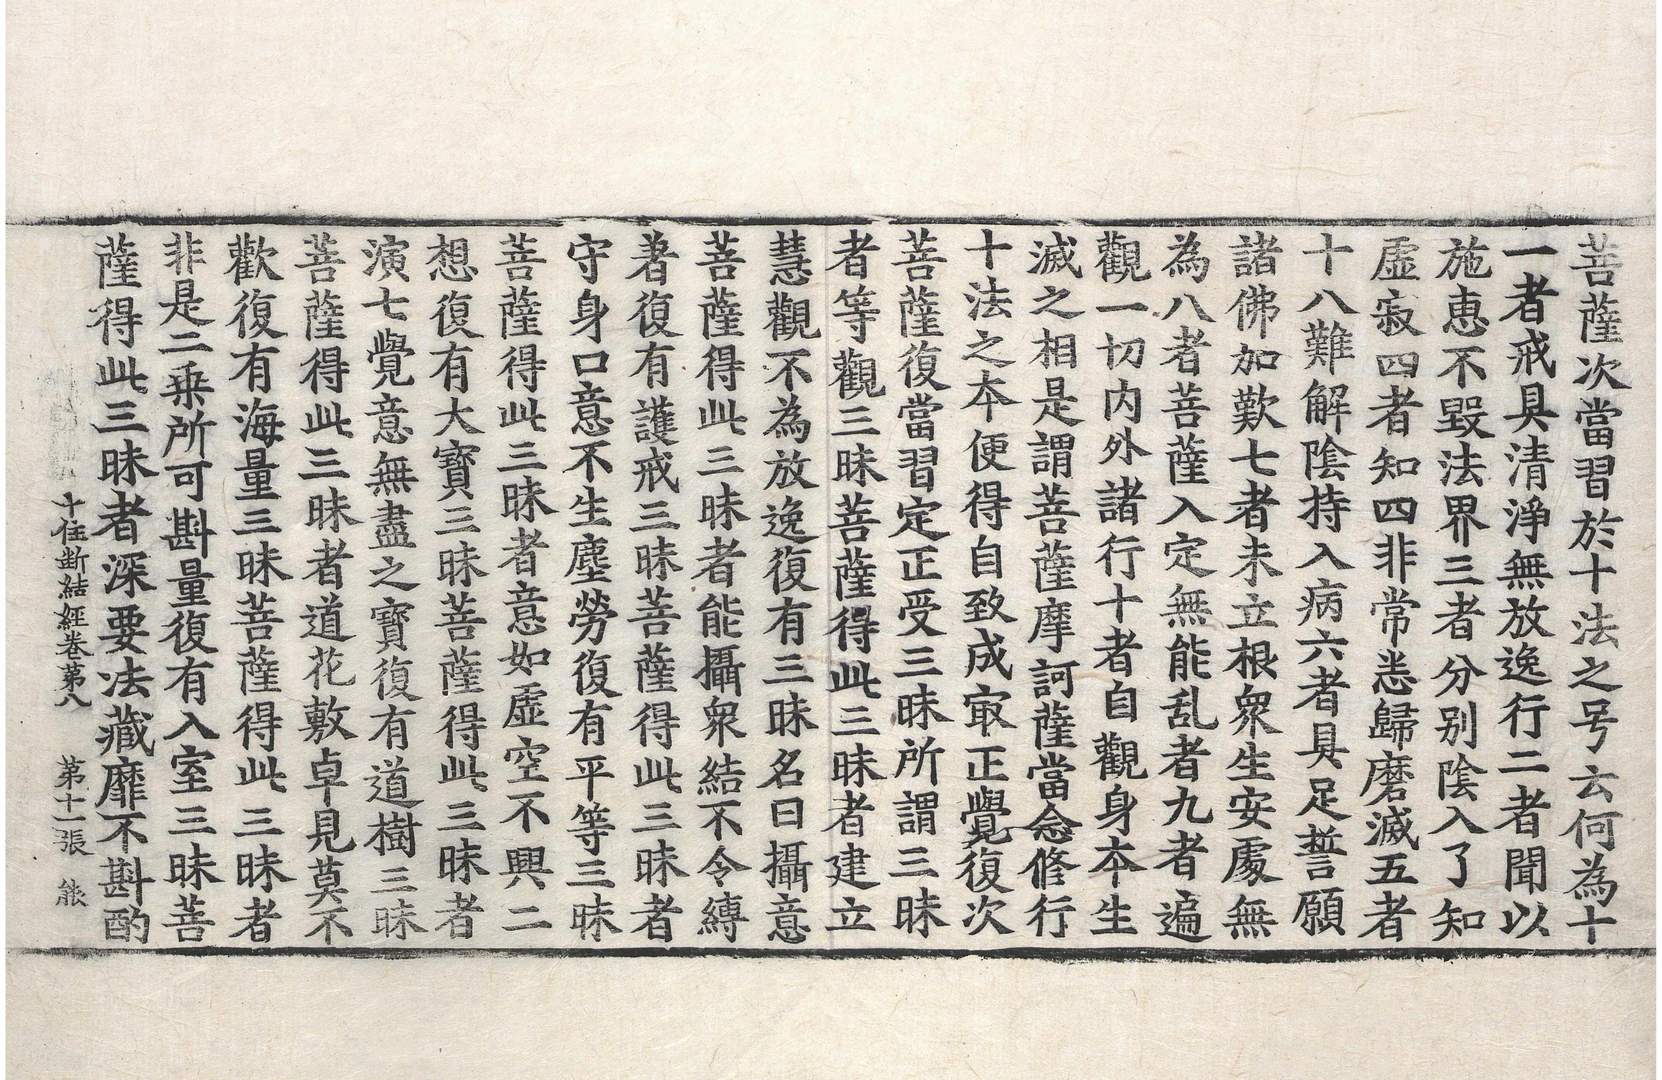 菩薩次當習於十法之号云何為十
一者戒具清淨無放逸行二者聞以
施惠不毀法界三者分別陰入了知
虛寂四者知四非常恙歸磨滅五者
十八難解陰持入病六者具足誓願
諸佛加歎七者未立根衆生安處無
為八者菩薩入定無能乱者九者遍
觀一切内外諸行十者自觀身本生
滅之相是謂菩薩摩訶薩當念修行
十法之本便得自致成㝡正覺復次
菩薩復當習定正受三昧所謂三昧
者等觀三昧菩薩得此三昧者建立
慧觀不為放逸復有三昧名曰攝意
菩薩得此三昧者能攝衆結不令縛
著復有護戒三昧菩薩得此三昧者
守身口意不生塵勞復有平等三昧
菩薩得此三昧者意如虛空不興二
想復有大寶三昧菩薩得此三昧者
演七覺意無盡之寶復有道樹三昧
菩薩得此三昧者道花敷卓見莫不
歡復有海量三昧菩薩得此三昧者
非是二乘所可斟量復有入室三昧菩
薩得此三昧者深要法藏靡不斟酌
十住斷結經卷第八 第十一張 能